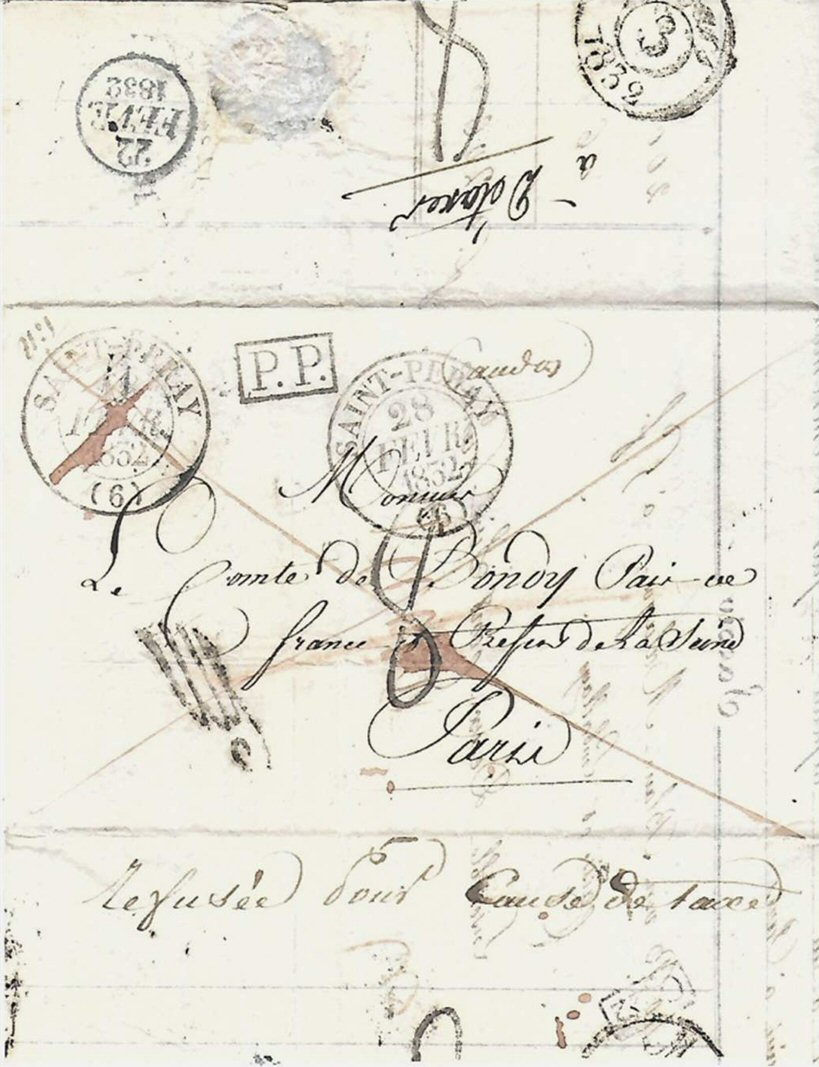 3
1832
22
FEVR
1832
à
Détaxer
SAINT-PERAY
11
FEVR.
1832
(6)
P.P.
SAINT-PERAY
28
FEVR.
1832
(6)
Monsieur
Le Comte de Bondy Pair de
france & Prefet de La Seine
Paris
Refusée pour Cause de taxe